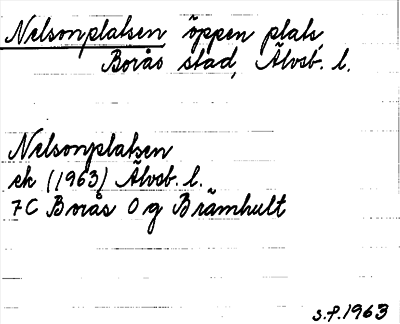 Nelsonplatsen öppen plats,
Borås stad, Älvsb. l.
Nelsonplatsen
ek (1963) Älvsb. l.
7C Borås O g Brämhult
s.f. 1963